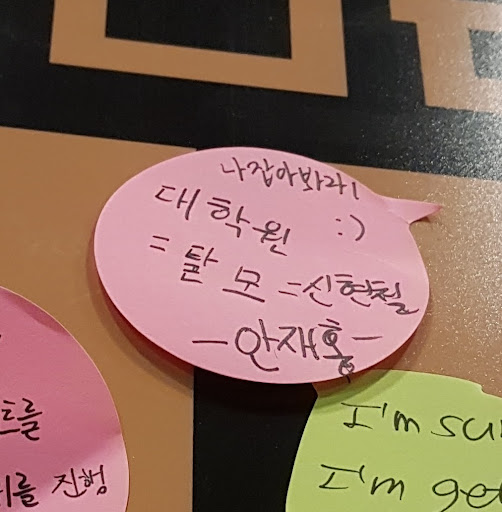 나잡아봐라!
대학원 :)
=탈모=신현철
-안재홍-
트를
를 진행
I'm su
I'm get